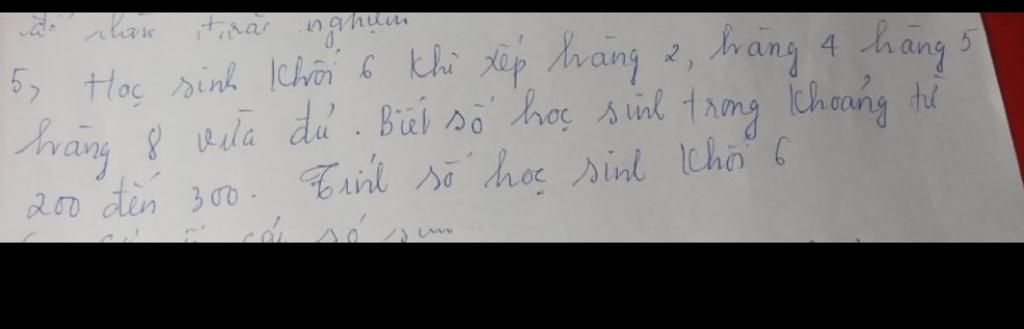 nghiệm
5, Học sinh khối 6 khi xếp hàng 2, hàng 4 hàng 5
hàng 8 vừa đủ. Biết số học sinh trong khoảng từ
200 đến 300. Tính số học sinh khối 6